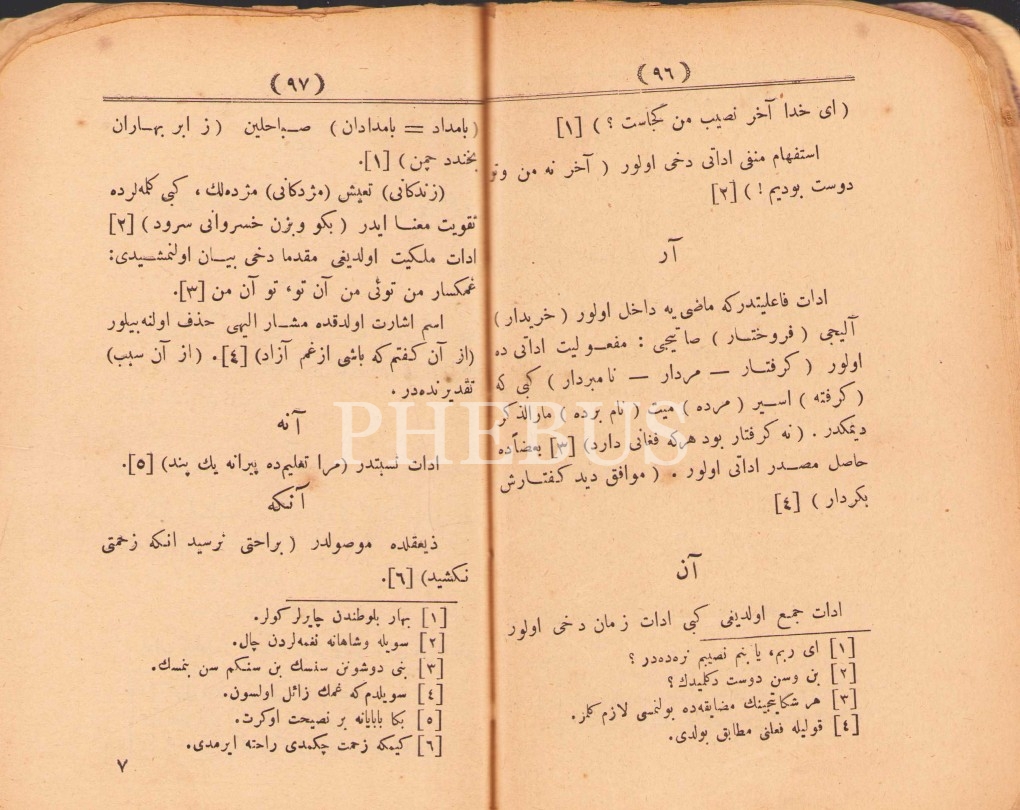 (٩٦)
( ای خدا آخر نصیب من کجاست ؟ ) [١]
استفهام منفی اداتی دخی اولور ( آخر نه من وتو
دوست بودیم ! ) [٢]
آر
ادات فاعلیتدرکه ماضی‌یه داخل اولور ( خریدار )
آلیجی ( فروختـار ) صاتیجی : مفعـولیت اداتی ده
اولور ( کرفتـار — مردار — نامبردار ) کبی که
( کرفته ) اسـیر ( مرده ) میت ( نام برده ) مارالذکر
دیمکدر . ( نه کرفتار بود هرکه فغانی دارد) [٣] بعضاًده
حاصل مصـدر اداتی اولور . ( موافق دید کفتـارش
بکردار ) [٤]
آن
ادات جمع اولدیغی کبی ادات زمان دخی اولور
[١] ای ربم، یا بنم نصیبم نره‌ده‌در ؟
[٢] بن وسن دوست دکلیدك ؟
[٣] هر شکایتجینك مضایقه‌ده بولنمسی لازم کلمز.
[٤] قولیله فعلنی مطابق بولدی.
(٩٧)
( بامداد = بامدادان ) صـباحلین ( ز ابر بهـاران
بخندد چمن ) [١].
(زندکانی) تعیش (مژدکانی) مژده‌لك ، کبی کلمه‌لرده
تقویت معنـا ایدر ( بکو وبزن خسروانی سرود ) [٢]
ادات ملکیت اولدیغی مقدما دخی بیـان اولنمشـیدی:
غمکسار من توئی من آن تو، تو آن من [٣].
اسم اشارت اولدقده مشـار الیهی حذف اولنه‌بیلور
(از آن کفتم که باشی ازغم آزاد) [٤]. (از آن سبب)
تقدیرنده‌در .
آنه
ادات نسبتدر (مرا تعلیم‌ده پیرانه یك پند) [٥].
آنکه
ذیعقلده موصولدر ( براحتی نرسید آنکه زحمتی
نکشید) [٦].
[١] بهار بلوطندن چایرلر کولر.
[٢] سویله وشاهانه نغمه‌لردن چال.
[٣] بنی دوشونن سنسك بن سنکم سن بنمسك.
[٤] سویلدم که غمك زائل اولسون.
[٥] بکا بابایانه بر نصیحت اوکرت.
[٦] کیمکه زحمت چکمدی راحته ایرمدی.
٧
PHEBUS